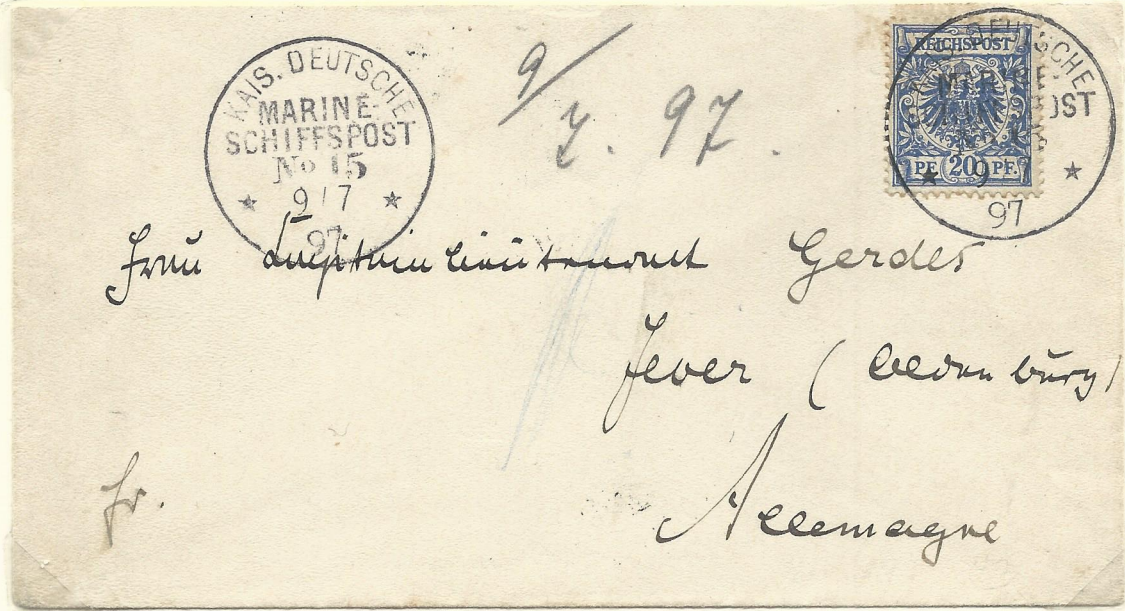 KAIS. DEUTSCHE
MARINE-
SCHIFFSPOST
No 15
9/7
97
9/7. 97.
REICHSPOST
PF. 20 PF.
DEUTSCHE
MAR NE-
OST
9 7
97
Frau Kapitainlieutenant Gerdes
Jever (Oldenburg)
Allemagne
Fr.